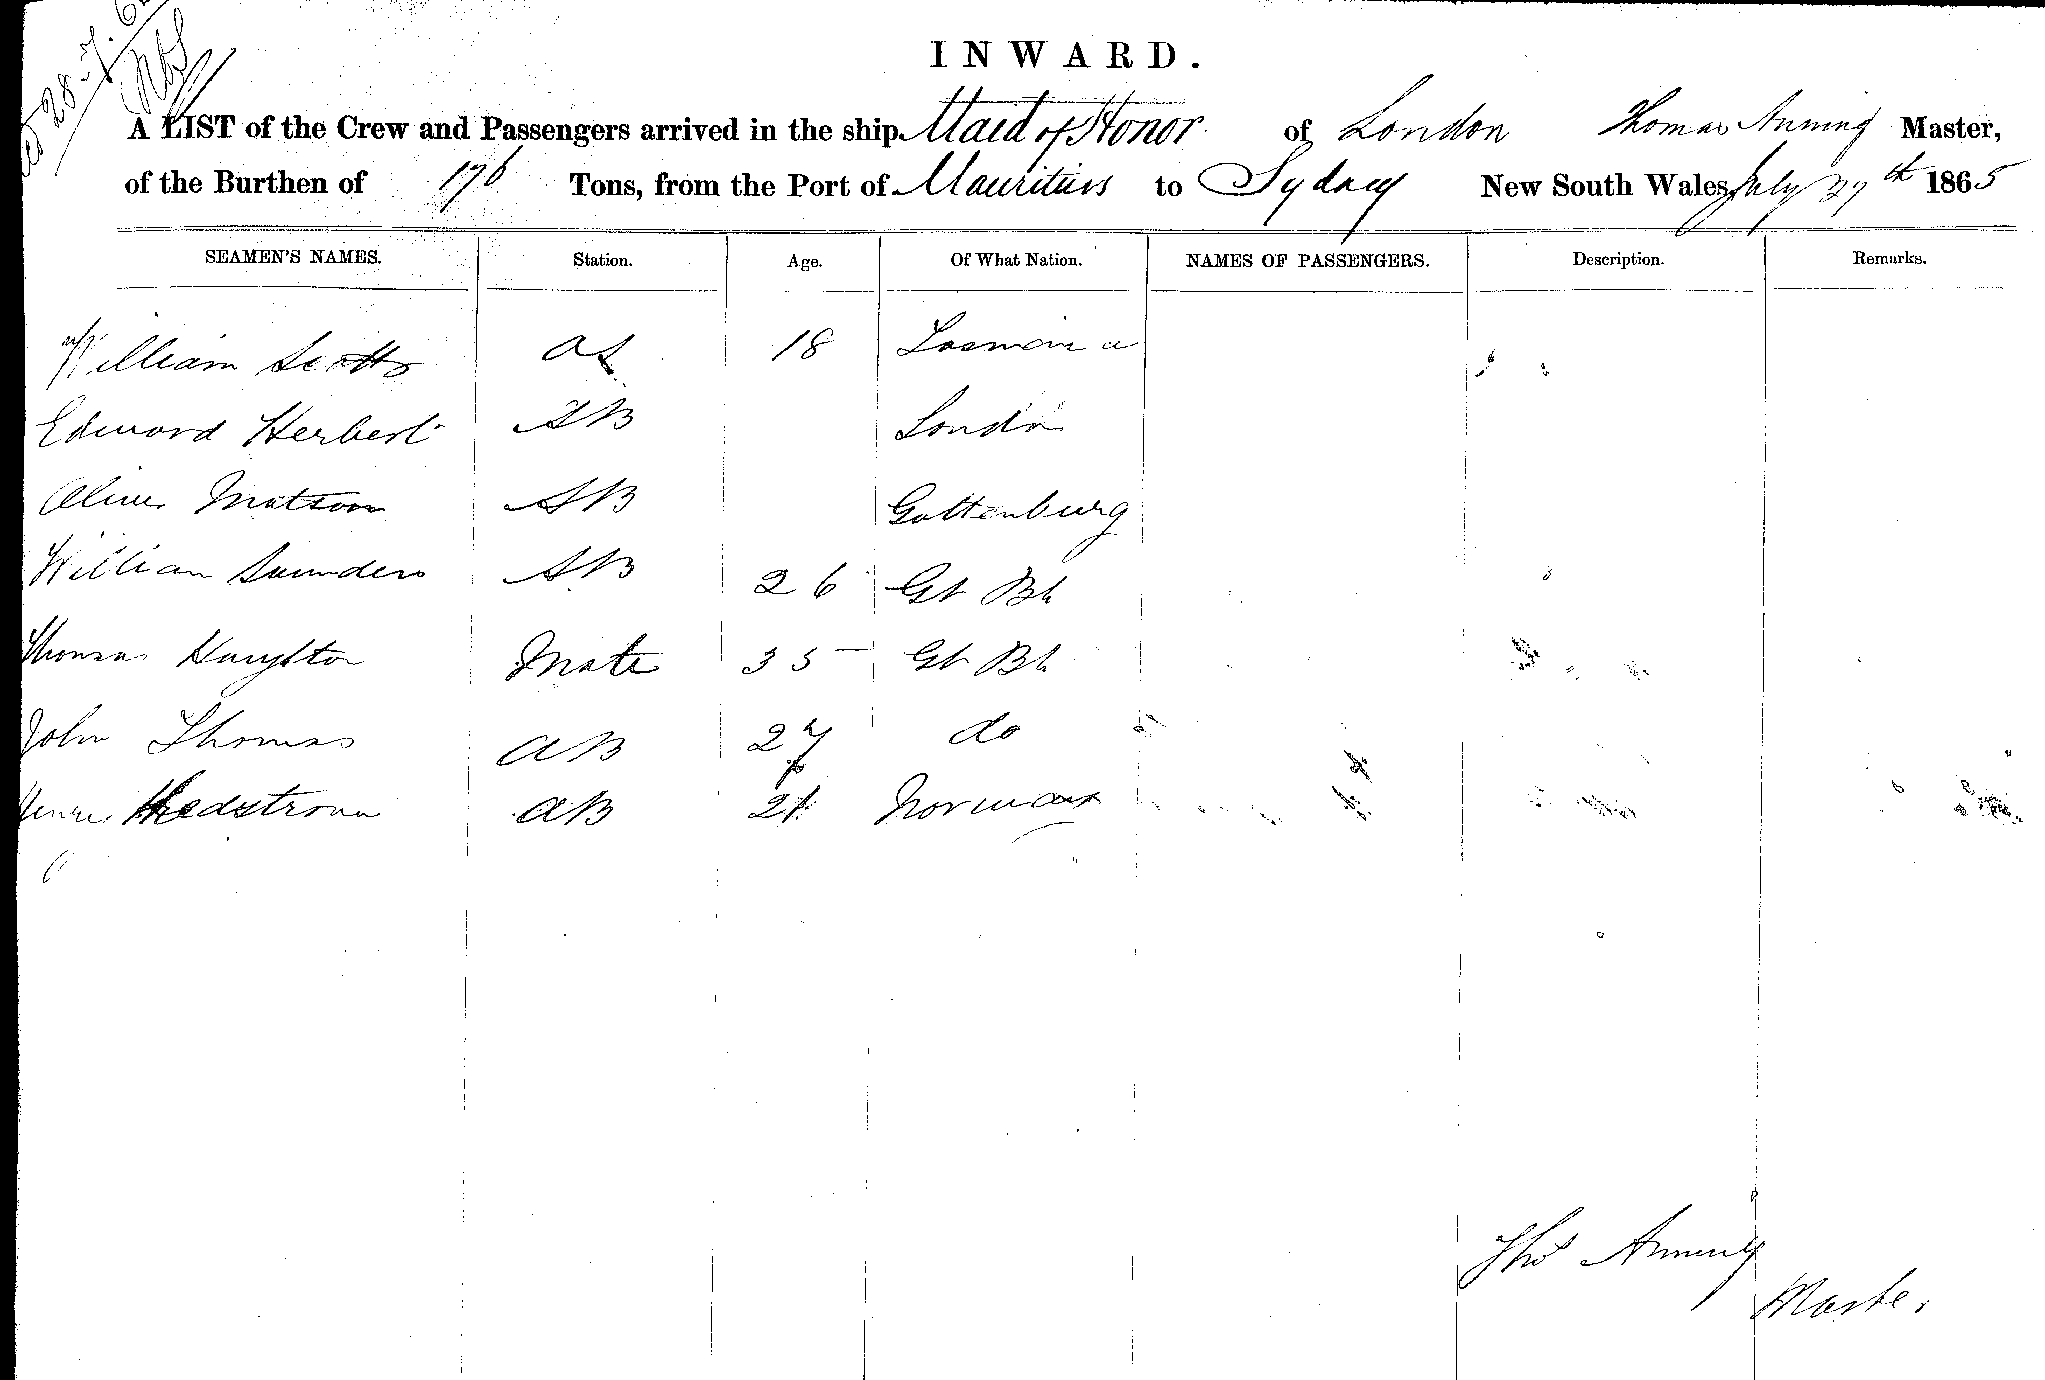 28.7.6
INWARD.
A LIST of the Crew and Passengers arrived in the ship Maid of Honor of London Thomas Anning Master,
of the Burthen of 176 Tons, from the Port of Mauritius to Sydney New South Wales, July 27th 1865
SEAMEN'S NAMES. Station. Age. Of What Nation. NAMES OF PASSENGERS. Description. Remarks.
William Scotts OS 18 Tasmania
Edward Herbert AB London
Oliver Matson AB Gottenburg
William Saunders AB 26 Gt Bh
Thomas Mate 35 Gt Bh
John Thomas AB 27 do
Hedstrom AB 21 Norway
Thos Anning
Master